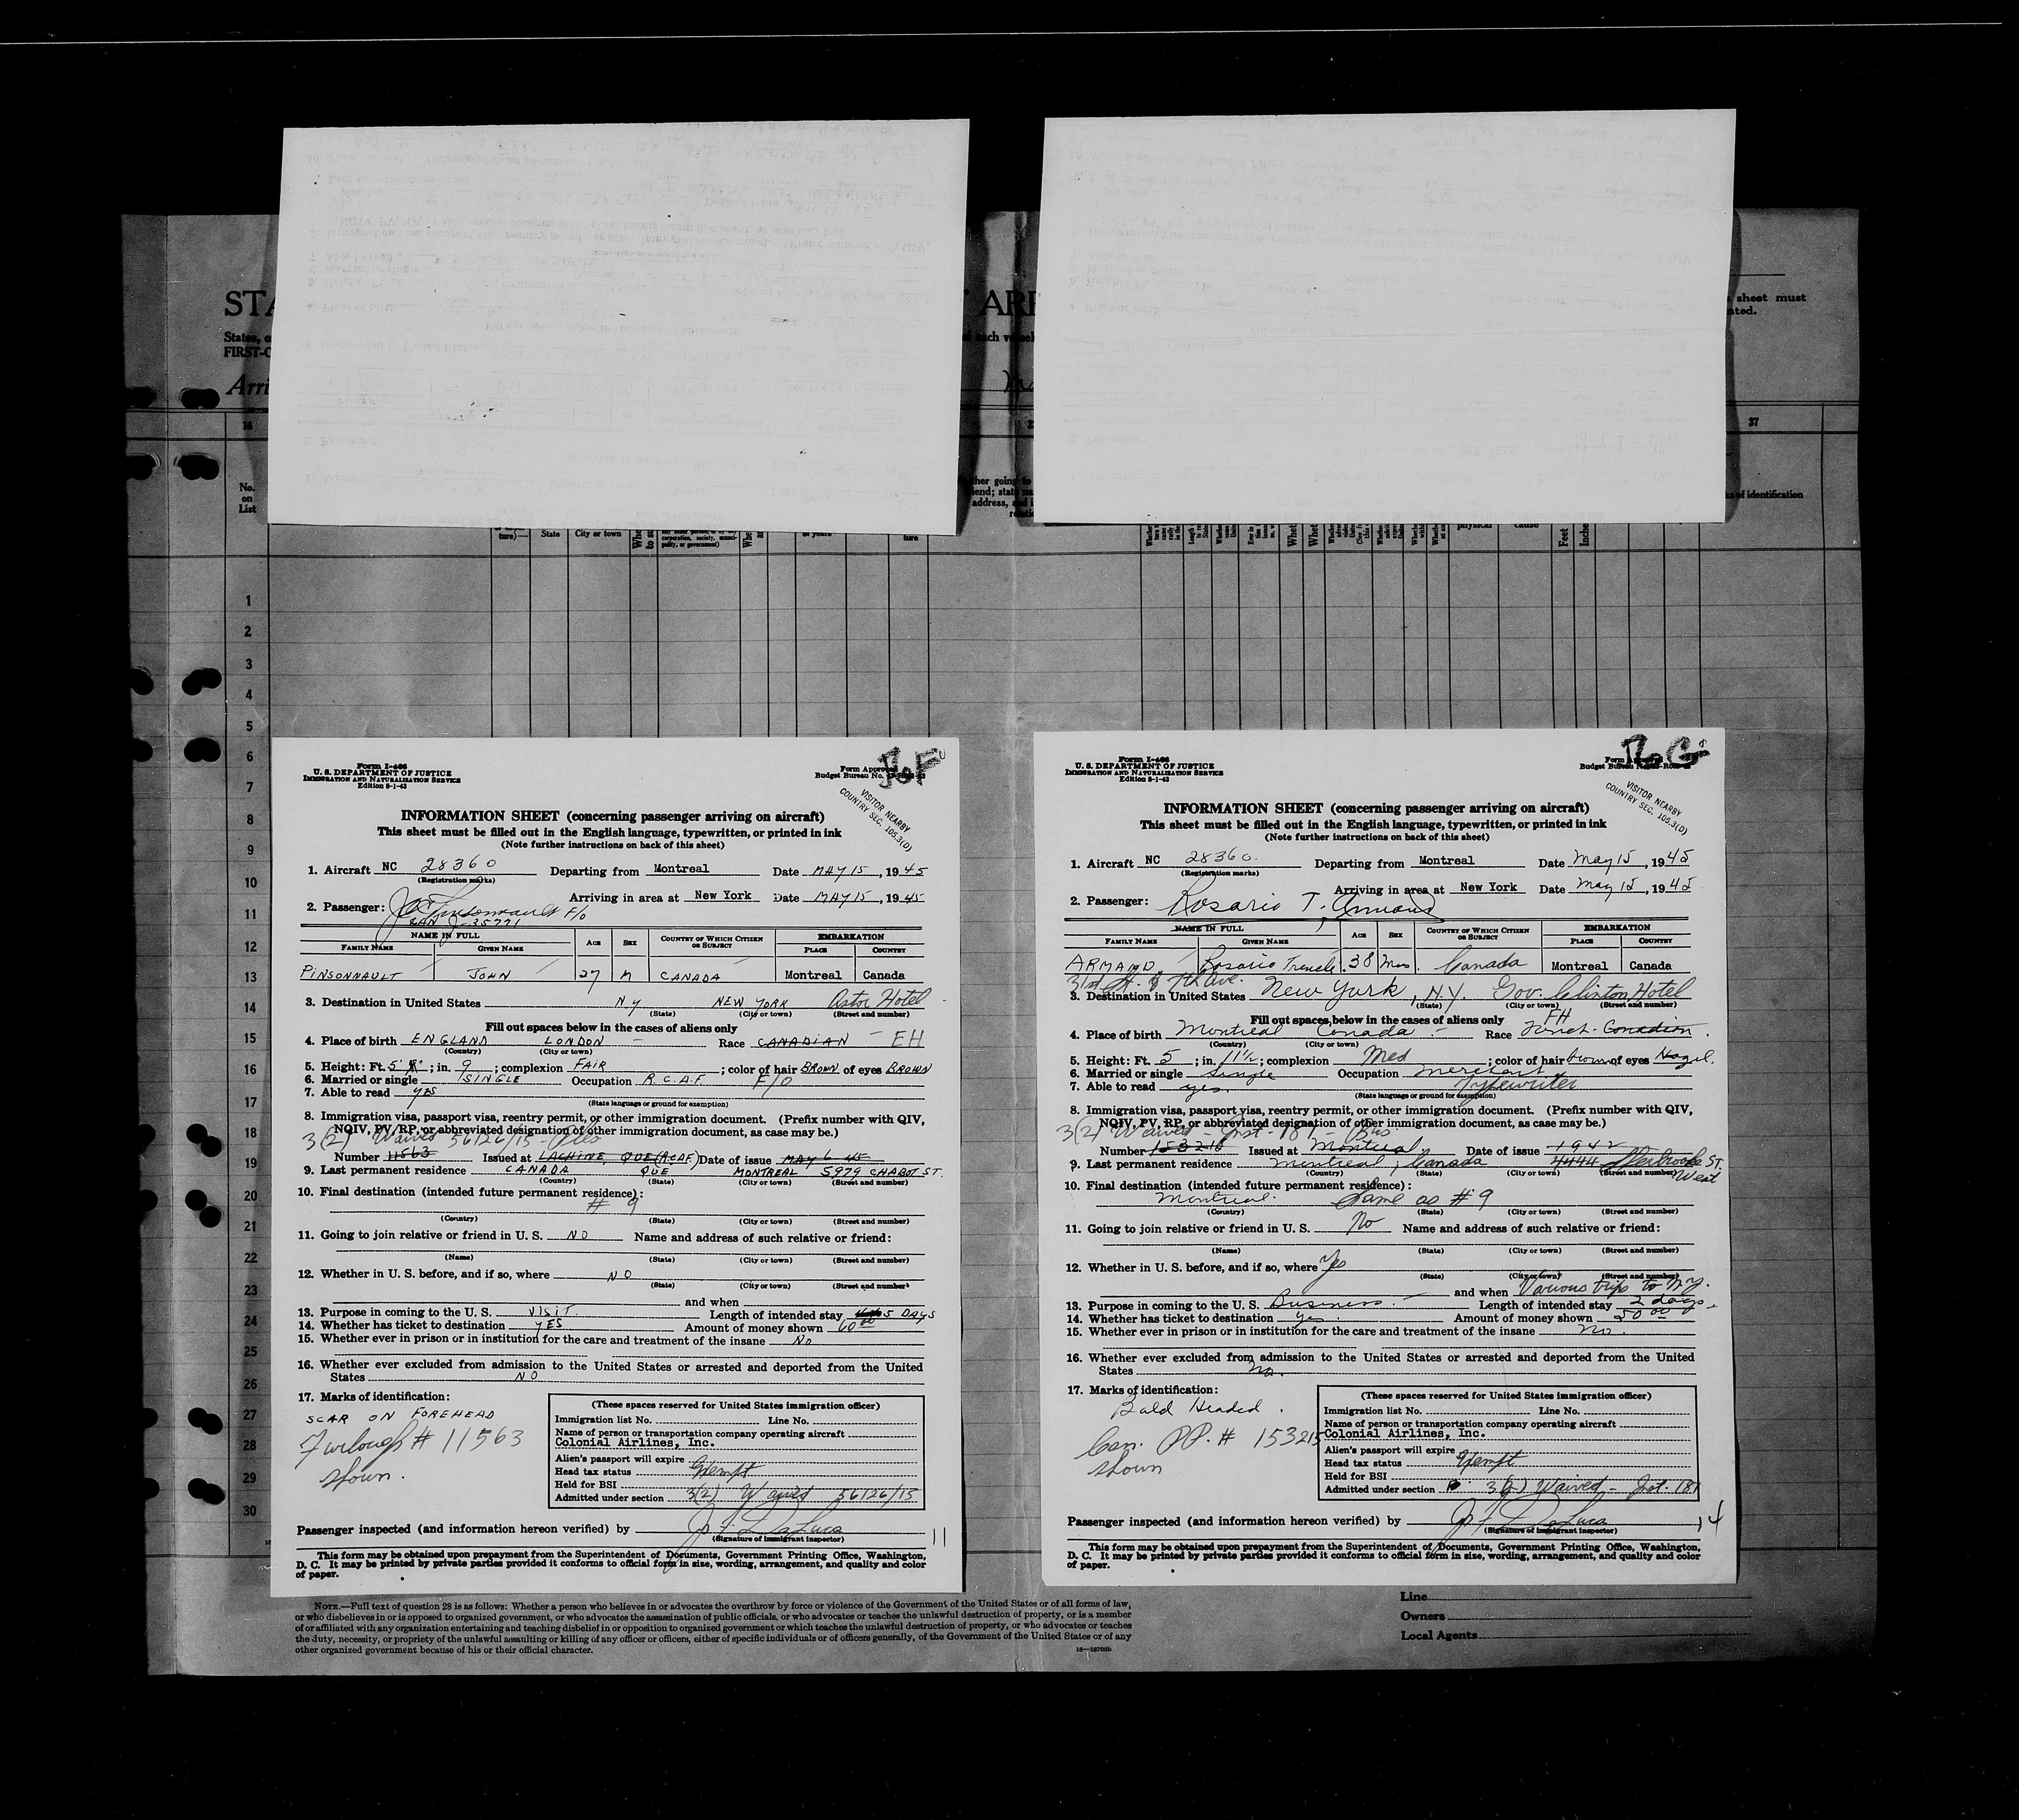 STA
ARR
sheet must
nted.
States, o
each vessel
FIRST-C
Arri
16
37
No.
on
List
ther going to
iend; state na
address, and i
relatio
ks of identification
ture)—
State
City or town
corporation, society, munici-
pality, or government)
of years
ture
physical
cause
Feet
Inche
1
2
3
4
5
6
7
8
9
10
11
12
13
14
15
16
17
18
19
20
21
22
23
24
25
26
27
28
29
30
Form I-466
U. S. DEPARTMENT OF JUSTICE
IMMIGRATION AND NATURALIZATION SERVICE
Edition 8-1-43
Form Approved
Budget Bureau No.
VISITOR NEARBY
COUNTRY SEC. 105.3(D)
INFORMATION SHEET (concerning passenger arriving on aircraft)
This sheet must be filled out in the English language, typewritten, or printed in ink
(Note further instructions on back of this sheet)
1. Aircraft NC 28360 Departing from Montreal Date MAY 15, 1945
(Registration marks)
Arriving in area at New York Date MAY 15, 1945
2. Passenger: F/o
CAN J-35771
NAME IN FULL AGE SEX COUNTRY OF WHICH CITIZEN OR SUBJECT EMBARKATION
FAMILY NAME GIVEN NAME PLACE COUNTRY
PINSONNAULT JOHN 27 M CANADA Montreal Canada
3. Destination in United States N.Y NEW YORK Astor Hotel
(State) (City or town) (Street and number)
Fill out spaces below in the cases of aliens only
4. Place of birth ENGLAND LONDON Race CANADIAN - EH
(Country) (City or town)
5. Height: Ft. 5'; in. 9; complexion FAIR; color of hair BROWN of eyes BROWN
6. Married or single SINGLE Occupation R.C.A.F. F/O
7. Able to read YES
(State language or ground for exemption)
8. Immigration visa, passport visa, reentry permit, or other immigration document. (Prefix number with QIV,
NQIV, PV, RP, or abbreviated designation of other immigration document, as case may be.)
3(2) Waived 56126/15
Number 11563 Issued at LACHINE, QUE (RCAF) Date of issue MAY 6 45
9. Last permanent residence CANADA QUE MONTREAL 5979 CHABOT ST.
(Country) (State) (City or town) (Street and number)
10. Final destination (intended future permanent residence):
# 9
(Country) (State) (City or town) (Street and number)
11. Going to join relative or friend in U. S. NO Name and address of such relative or friend:
(Name) (State) (City or town) (Street and number)
12. Whether in U. S. before, and if so, where NO
(State) (City or town) (Street and number)
and when
13. Purpose in coming to the U. S. VISIT. Length of intended stay 5 DAYS
14. Whether has ticket to destination YES Amount of money shown 60 00
15. Whether ever in prison or in institution for the care and treatment of the insane NO
16. Whether ever excluded from admission to the United States or arrested and deported from the United
States NO
17. Marks of identification:
SCAR ON FOREHEAD
Furlough # 11563
shown.
(These spaces reserved for United States immigration officer)
Immigration list No. Line No.
Name of person or transportation company operating aircraft
Colonial Airlines, Inc.
Alien's passport will expire
Head tax status Exempt
Held for BSI
Admitted under section 3(2) Waived 56126/15
Passenger inspected (and information hereon verified) by J. F. DeLuca 11
(Signature of immigrant inspector)
This form may be obtained upon prepayment from the Superintendent of Documents, Government Printing Office, Washington,
D. C. It may be printed by private parties provided it conforms to official form in size, wording, arrangement, and quality and color
of paper.
Form I-466
U. S. DEPARTMENT OF JUSTICE
IMMIGRATION AND NATURALIZATION SERVICE
Edition 8-1-43
Form
Budget Bureau
VISITOR NEARBY
COUNTRY SEC. 105.3(D)
INFORMATION SHEET (concerning passenger arriving on aircraft)
This sheet must be filled out in the English language, typewritten, or printed in ink
(Note further instructions on back of this sheet)
1. Aircraft NC 28360. Departing from Montreal Date May 15, 1945
(Registration marks)
Arriving in area at New York Date May 15, 1945
2. Passenger: Rosario T. Armand
NAME IN FULL AGE SEX COUNTRY OF WHICH CITIZEN OR SUBJECT EMBARKATION
FAMILY NAME GIVEN NAME PLACE COUNTRY
ARMAND, Rosario 38 Mas. Canada Montreal Canada
31st St. & 7th Ave.
3. Destination in United States New York, N.Y. Gov. Clinton Hotel
(State) (City or town) (Street and number)
Fill out spaces below in the cases of aliens only FH
4. Place of birth Montreal Canada Race French-Canadian.
(Country) (City or town)
5. Height: Ft. 5; in. 11½; complexion Med; color of hair brown of eyes Hazel.
6. Married or single Single Occupation Merchant
7. Able to read yes. Typewriter
(State language or ground for exemption)
8. Immigration visa, passport visa, reentry permit, or other immigration document. (Prefix number with QIV,
NQIV, PV, RP, or abbreviated designation of other immigration document, as case may be.)
3(2) Waived - Inst - 187 Bus.
Number 153215 Issued at Montreal Date of issue 1942
9. Last permanent residence Montreal, Canada 4444 Sherbrooke ST. West
(Country) (State) (City or town) (Street and number)
10. Final destination (intended future permanent residence):
Montreal. Same as #9
(Country) (State) (City or town) (Street and number)
11. Going to join relative or friend in U. S. No Name and address of such relative or friend:
(Name) (State) (City or town) (Street and number)
12. Whether in U. S. before, and if so, where Yes
(State) (City or town) (Street and number)
and when Various trips to N.Y.
13. Purpose in coming to the U. S. Business. Length of intended stay 2 days.
14. Whether has ticket to destination yes. Amount of money shown 50 00
15. Whether ever in prison or in institution for the care and treatment of the insane no.
16. Whether ever excluded from admission to the United States or arrested and deported from the United
States no.
17. Marks of identification:
Bald Headed.
Can. PP. # 153215
shown
(These spaces reserved for United States immigration officer)
Immigration list No. Line No.
Name of person or transportation company operating aircraft
Colonial Airlines, Inc.
Alien's passport will expire
Head tax status Exempt
Held for BSI
Admitted under section 3(2) Waived - Inst. 187
Passenger inspected (and information hereon verified) by J. F. DeLuca 14
(Signature of immigrant inspector)
This form may be obtained upon prepayment from the Superintendent of Documents, Government Printing Office, Washington,
D. C. It may be printed by private parties provided it conforms to official form in size, wording, arrangement, and quality and color
of paper.
NOTE.—Full text of question 28 is as follows: Whether a person who believes in or advocates the overthrow by force or violence of the Government of the United States or of all forms of law,
or who disbelieves in or is opposed to organized government, or who advocates the assassination of public officials, or who advocates or teaches the unlawful destruction of property, or is a member
of or affiliated with any organization entertaining and teaching disbelief in or opposition to organized government or which teaches the unlawful destruction of property, or who advocates or teaches
the duty, necessity, or propriety of the unlawful assaulting or killing of any officer or officers, either of specific individuals or of officers generally, of the Government of the United States or of any
other organized government because of his or their official character.
16—18700b
Line
Owners
Local Agents